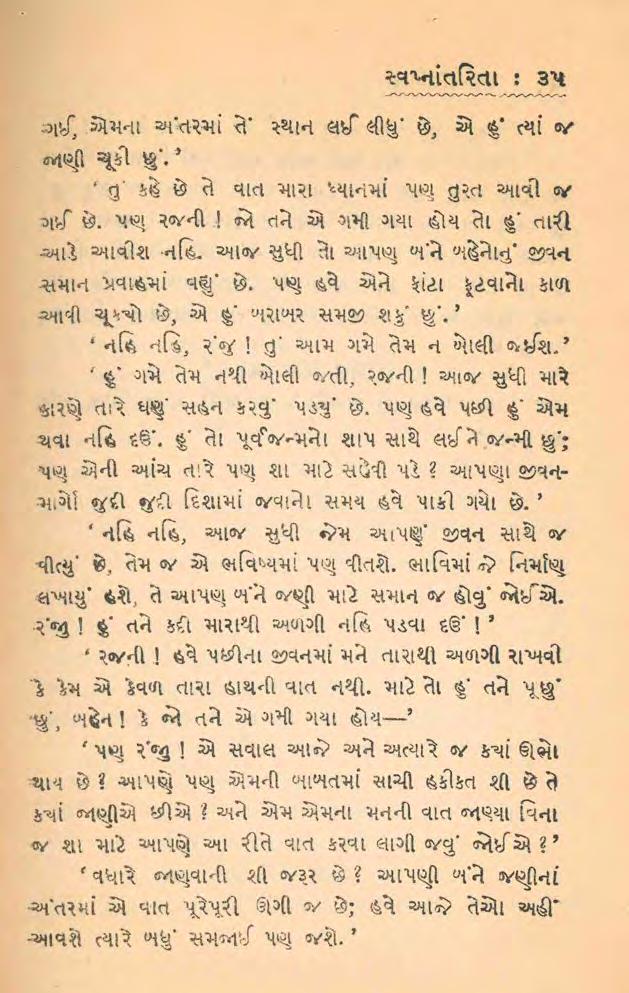 સ્વપ્નાંતરિતા : ૩૫
ગઈ, એમના અંતરમાં તેં સ્થાન લઈ લીધું છે, એ હું ત્યાં જ
જાણી ચૂકી છું.’
‘તું કહે છે તે વાત મારા ધ્યાનમાં પણ તુરત આવી જ
ગઈ છે. પણ રજની ! જો તને એ ગમી ગયા હોય તો હું તારી
આડે આવીશ નહિ. આજ સુધી તો આપણ બંને બહેનોનું જીવન
સમાન પ્રવાહમાં વહ્યું છે. પણ હવે એને ફાંટા ફૂટવાનો કાળ
આવી ચૂક્યો છે, એ હું બરાબર સમજી શકું છું.’
‘નહિ નહિ, રંજુ ! તું આમ ગમે તેમ ન બોલી જઈશ.’
‘હું ગમે તેમ નથી બોલી જતી, રજની ! આજ સુધી મારે
કારણે તારે ઘણું સહન કરવું પડ્યું છે. પણ હવે પછી હું એમ
થવા નહિ દઉં. હું તો પૂર્વજન્મનો શાપ સાથે લઈને જન્મી છું;
પણ એની આંચ તારે પણ શા માટે સહેવી પડે ? આપણા જીવન-
માર્ગો જુદી જુદી દિશામાં જવાનો સમય હવે પાકી ગયો છે.’
‘નહિ નહિ, આજ સુધી જેમ આપણું જીવન સાથે જ
વીત્યું છે, તેમ જ એ ભવિષ્યમાં પણ વીતશે. ભાવિમાં જે નિર્માણ
લખાયું હશે, તે આપણ બંને જણી માટે સમાન જ હોવું જોઈએ.
રંજુ ! હું તને કદી મારાથી અળગી નહિ પડવા દઉં !’
‘રજની ! હવે પછીના જીવનમાં મને તારાથી અળગી રાખવી
કે કેમ એ કેવળ તારા હાથની વાત નથી. માટે તો હું તને પૂછું
છું, બહેન ! કે જો તને એ ગમી ગયા હોય—’
‘પણ રંજુ ! એ સવાલ આજે અને અત્યારે જ ક્યાં ઊભો
થાય છે ? આપણે પણ એમની બાબતમાં સાચી હકીકત શી છે તે
ક્યાં જાણીએ છીએ ? અને એમ એમના મનની વાત જાણ્યા વિના
જ શા માટે આપણે આ રીતે વાત કરવા લાગી જવું જોઈએ ?’
‘વધારે જાણવાની શી જરૂર છે ? આપણી બંને જણીનાં
અંતરમાં એ વાત પૂરેપૂરી ઊગી જ છે; હવે આજે તેઓ અહીં
આવશે ત્યારે બધું સમજાઈ પણ જશે.’